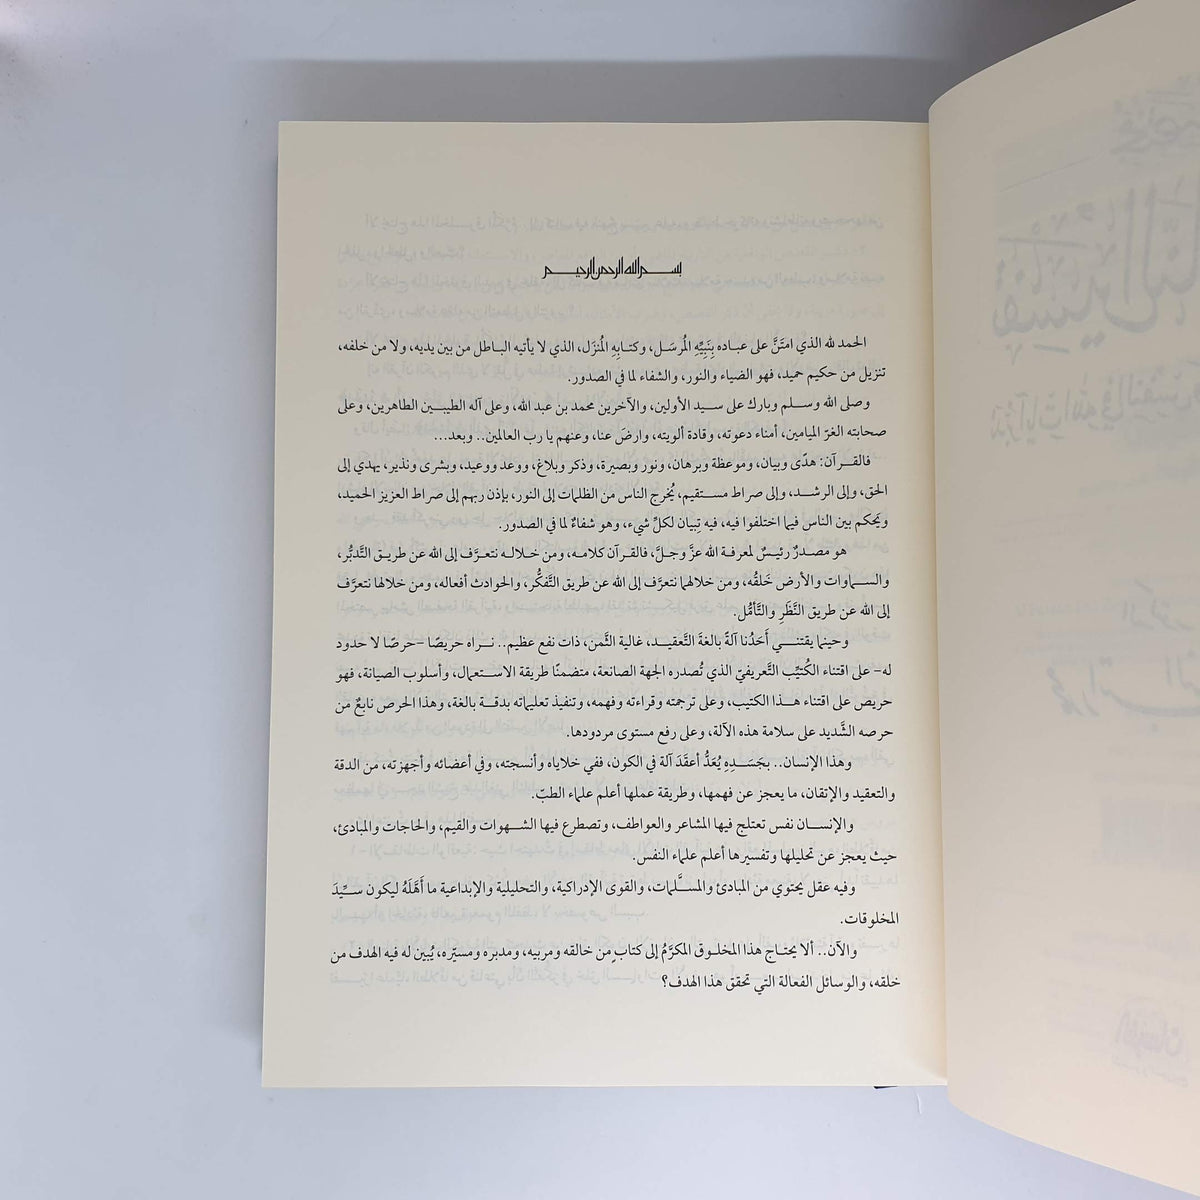 بسم الله الرحمن الرحيم
الحمد لله الذي امتَنَّ على عباده بِنَبِيِّهِ المُرسَل، وكتابِهِ المُنزَل، الذي لا يأتيه الباطل من بين يديه، ولا من خلفه،
تنزيل من حكيم حميد، فهو الضياء والنور، والشفاء لما في الصدور.
وصلى الله وسلم وبارك على سيد الأولين، والآخرين محمد بن عبد الله، وعلى آله الطيبين الطاهرين، وعلى
صحابته الغرّ الميامين، أمناء دعوته، وقادة ألويته، وارضَ عنا، وعنهم يا رب العالمين.. وبعد...
فالقرآن: هدًى وبيان، وموعظة وبرهان، ونور وبصيرة، وذكر وبلاغ، ووعد ووعيد، وبشرى ونذير، يهدي إلى
الحق، وإلى الرشد، وإلى صراط مستقيم، يُخرج الناس من الظلمات إلى النور، بإذن ربهم إلى صراط العزيز الحميد،
ويَحكم بين الناس فيما اختلفوا فيه، فيه تِبيان لكلِّ شيء، وهو شفاءٌ لما في الصدور.
هو مصدرٌ رئيسٌ لمعرفة الله عزَّ وجلَّ، فالقرآن كلامه، ومن خلاله نتعرَّف إلى الله عن طريق التَّدبُّر،
والسماوات والأرض خَلقُه، ومن خلالهما نتعرَّف إلى الله عن طريق التَّفكُّر، والحوادث أفعاله، ومن خلالها نتعرَّف
إلى الله عن طريق النَّظَرِ والتَّأمُّل.
وحينما يقتني أَحَدُنا آلةً بالغةَ التَّعقيد، غالية الثَّمن، ذات نفع عظيم.. نراه حريصًا -حرصًا لا حدود
له- على اقتناء الكُتيِّب التَّعريفيّ الذي تُصدره الجهة الصانعة، متضمنًا طريقة الاستعمال، وأسلوب الصيانة، فهو
حريص على اقتناء هذا الكتيب، وعلى ترجمته وقراءته وفهمه، وتنفيذ تعليماته بدقة بالغة، وهذا الحرص نابعٌ من
حرصه الشَّديد على سلامة هذه الآلة، وعلى رفع مستوى مردودها.
وهذا الإنسان.. بجَسَدِهِ يُعَدُّ أعقَدَ آلة في الكون، ففي خلاياه وأنسجته، وفي أعضائه وأجهزته، من الدقة
والتعقيد والإتقان، ما يعجز عن فهمها، وطريقة عملها أعلم علماء الطبّ.
والإنسان نفس تعتلج فيها المشاعر والعواطف، وتصطرع فيها الشهوات والقيم، والحاجات والمبادئ،
حيث يعجز عن تحليلها وتفسيرها أعلم علماء النفس.
وفيه عقل يحتوي من المبادئ والمسلَّمات، والقوى الإدراكية، والتحليلية والإبداعية ما أَهَّلَهُ ليكون سيِّدَ
المخلوقات.
والآن.. ألا يحتاج هذا المخلوق المكرَّمُ إلى كتاب من خالقه ومربيه، ومدبره ومسيّره، يُبينَ له فيه الهدف من
خلقه، والوسائل الفعالة التي تحقق هذا الهدف؟